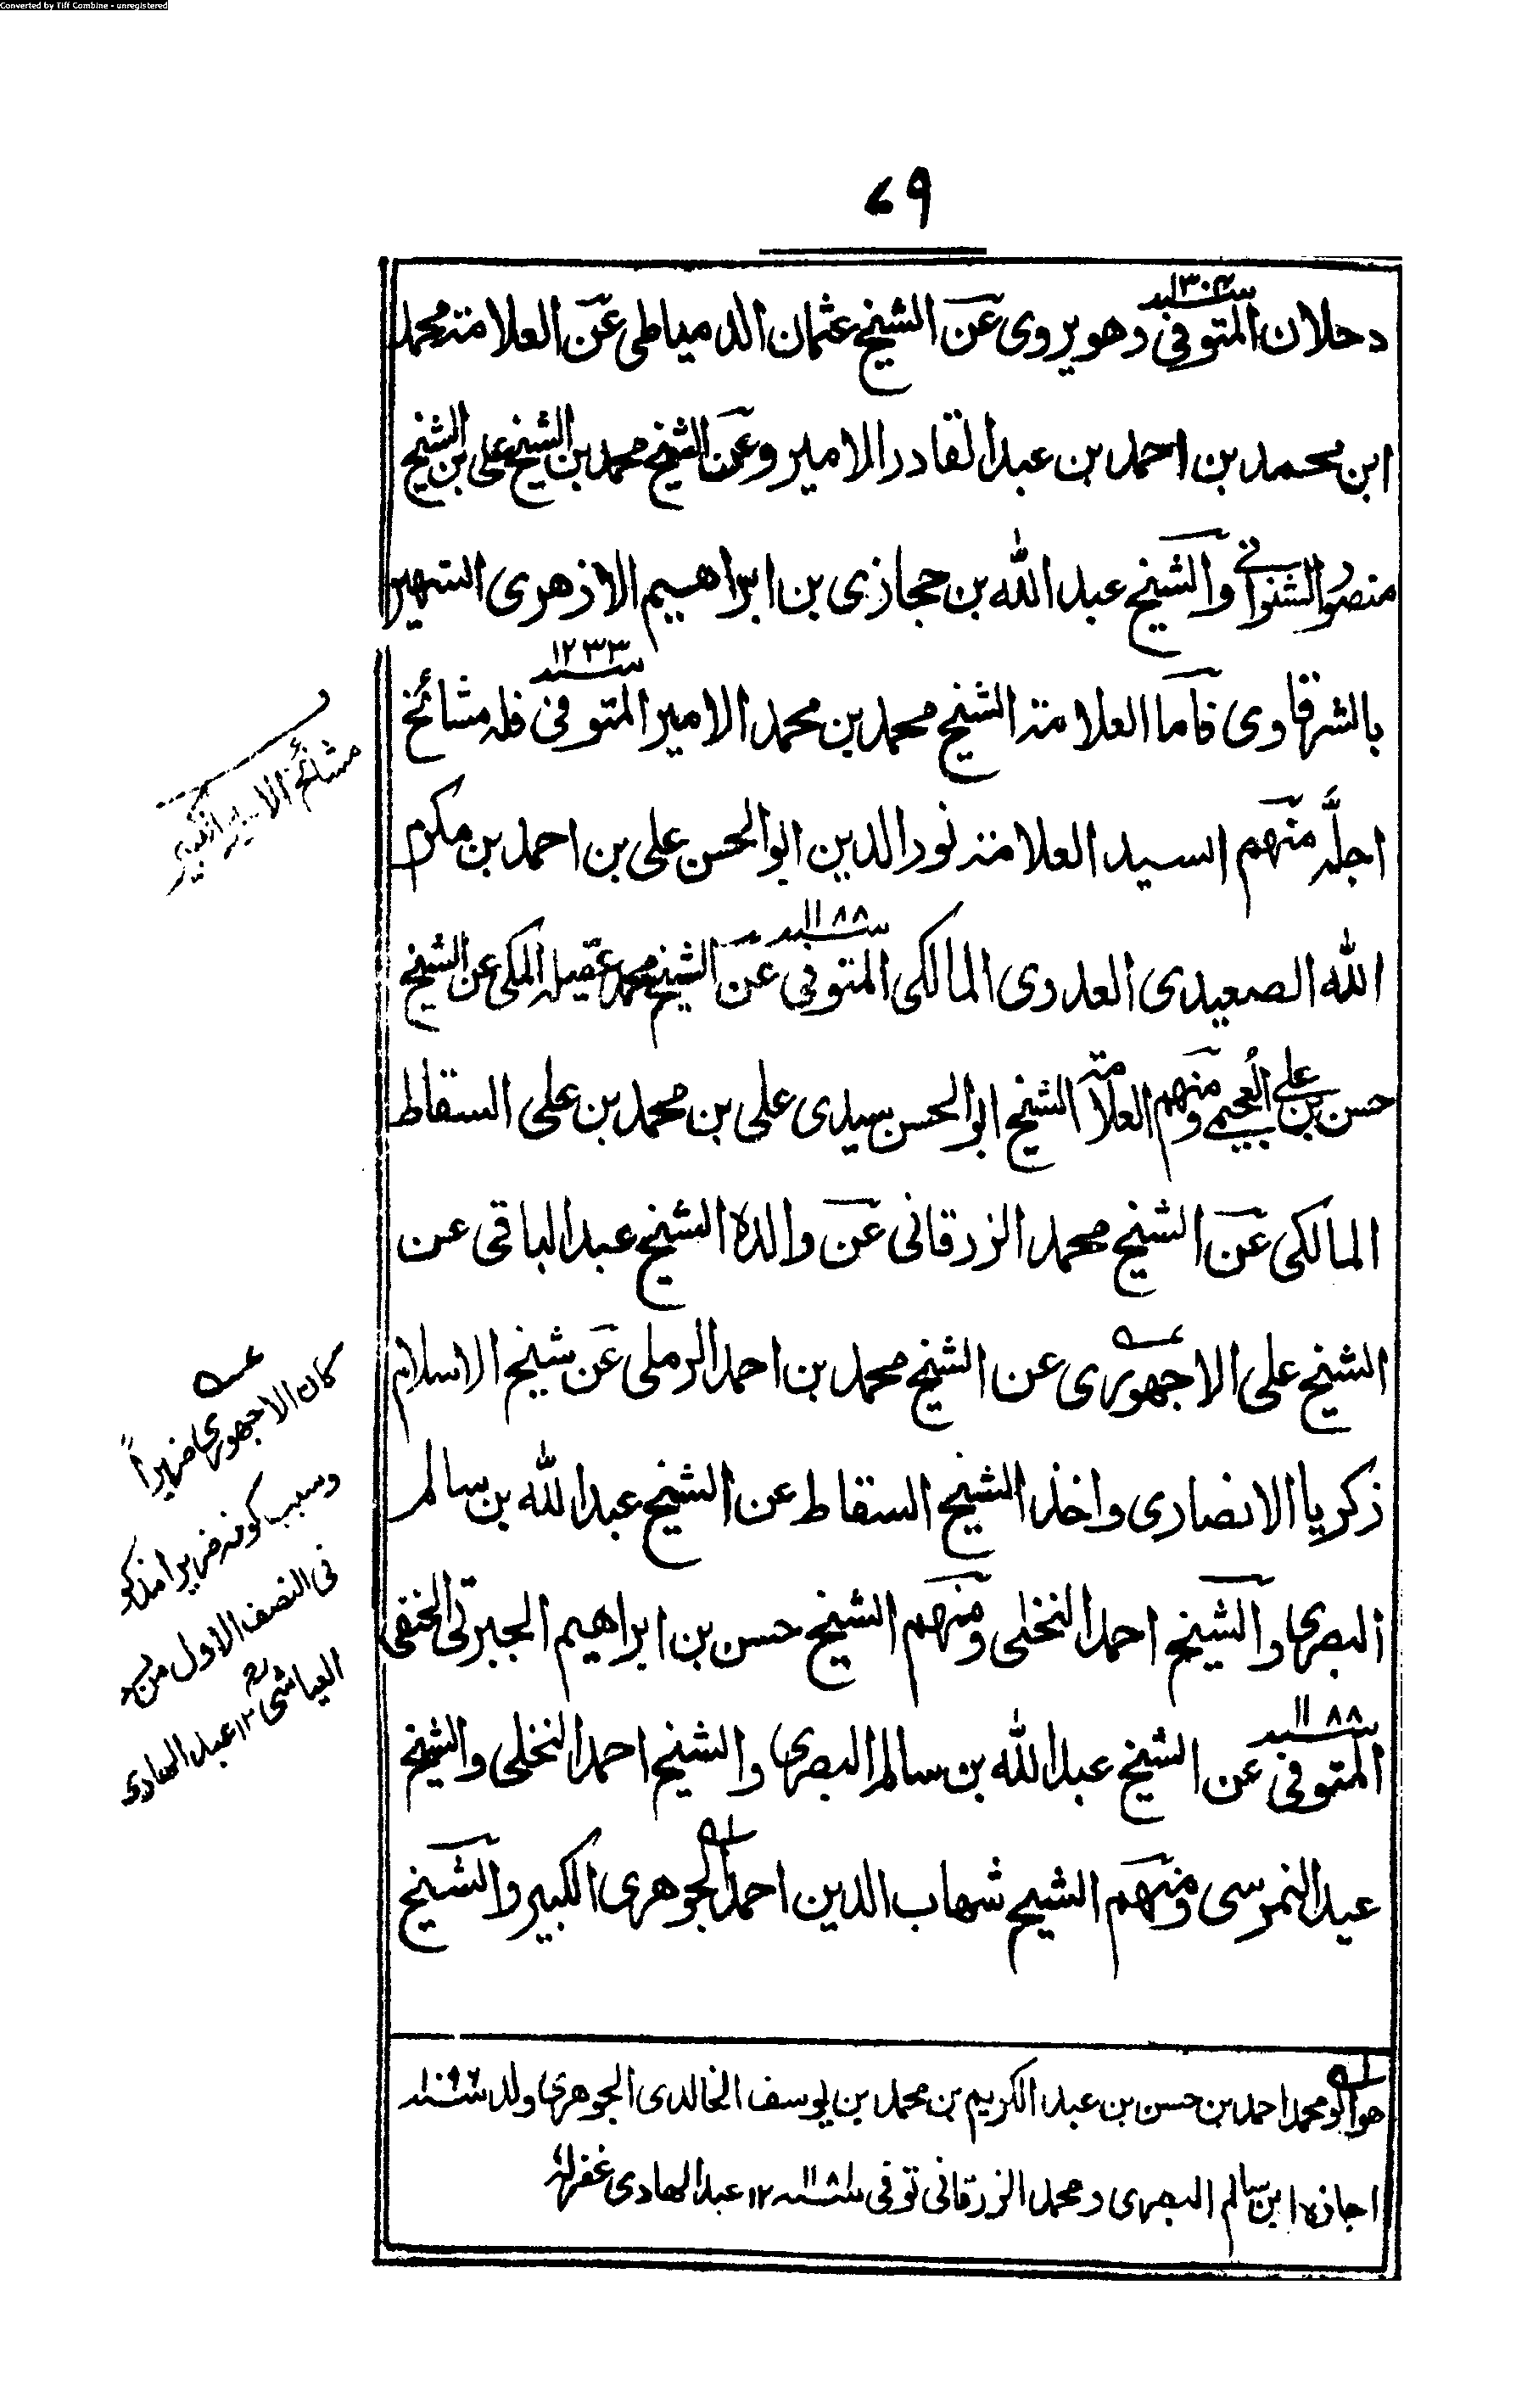 Converted by Tiff Combine - unregistered
۶۹
دحلان المتوفى سنه ۱۳۰۴ وهو يروى عن الشيخ عثمان الدمياطى عن العلامة محمد
ابن محمد بن احمد بن عبد القادر الامير وعن الشيخ محمد بن الشيخ على بن الشيخ
منصور الشنوانى والشيخ عبد الله بن حجازى بن ابراهيم الازهرى الشهير
بالشرقاوى فاما العلامة الشيخ محمد بن محمد الامير المتوفى سنه ۱۲۳۳ فله مشائخ
اجلّه منهم السيد العلامة نور الدين ابو الحسن على بن احمد بن مكرم
الله الصعيدى العدوى المالكى المتوفى سنه ۱۱۸۸ عن الشيخ محمد عقيله المكى عن الشيخ
حسن بن على العجيمى ومنهم العلامة الشيخ ابو الحسن سيدى على بن محمد بن على السقاط
المالكى عن الشيخ محمد الزرقانى عن والده الشيخ عبد الباقى عن
الشيخ على الاجهورى عن الشيخ محمد بن احمد الرملى عن شيخ الاسلام
زكريا الانصارى واخذ الشيخ السقاط عن الشيخ عبد الله بن سالم
البصرى والشيخ احمد النخلى ومنهم الشيخ حسن بن ابراهيم الجبرتى الحنفى
المتوفى سنه ۱۱۸۸ عن الشيخ عبد الله بن سالم البصرى والشيخ احمد النخلى والشيخ
عيد النمرسى ومنهم الشيخ شهاب الدين احمد الجوهرى الكبير والشيخ
مشائخ الامير الكبير
كان الاجهورى ضريراً
وسبب كونه ضريرا مذكور
فى النصف الاول من
العياشى ۱۲ عبد الهادى
هو ابو محمد احمد بن حسن بن عبد الكريم بن محمد بن يوسف الخالدى الجوهرى ولد سنه ۱۰۹۶
اجازه ابن سالم البصرى ومحمد الزرقانى توفى سنه ۱۱۸۱ ۱۲ عبد الهادى غفرله